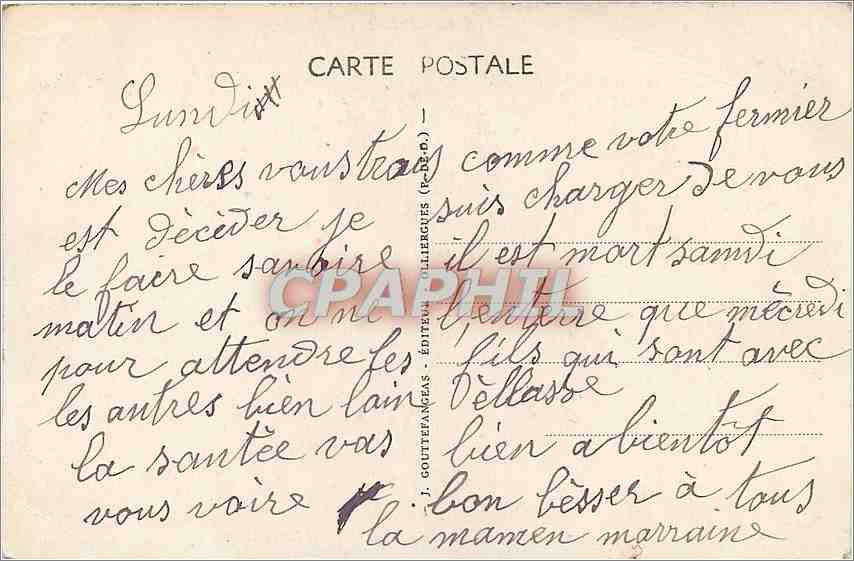 CARTE POSTALE
Lundi
Mes chères vous trous comme votre fermier
est dècèder je suis charger de vous
le faire savoire il est mort samdi
matin et on ne l'enterre que mècredi
pour attendre les fils qui sont avec
les autres bien loin
la santèe vas bien a bientôt
vous voire bon bèsser à tous
la mamen marraine
J. GOUTTEFANGEAS - ÉDITEUR OLLIERGUES (P.-DE-D.) —
CPAPHIL